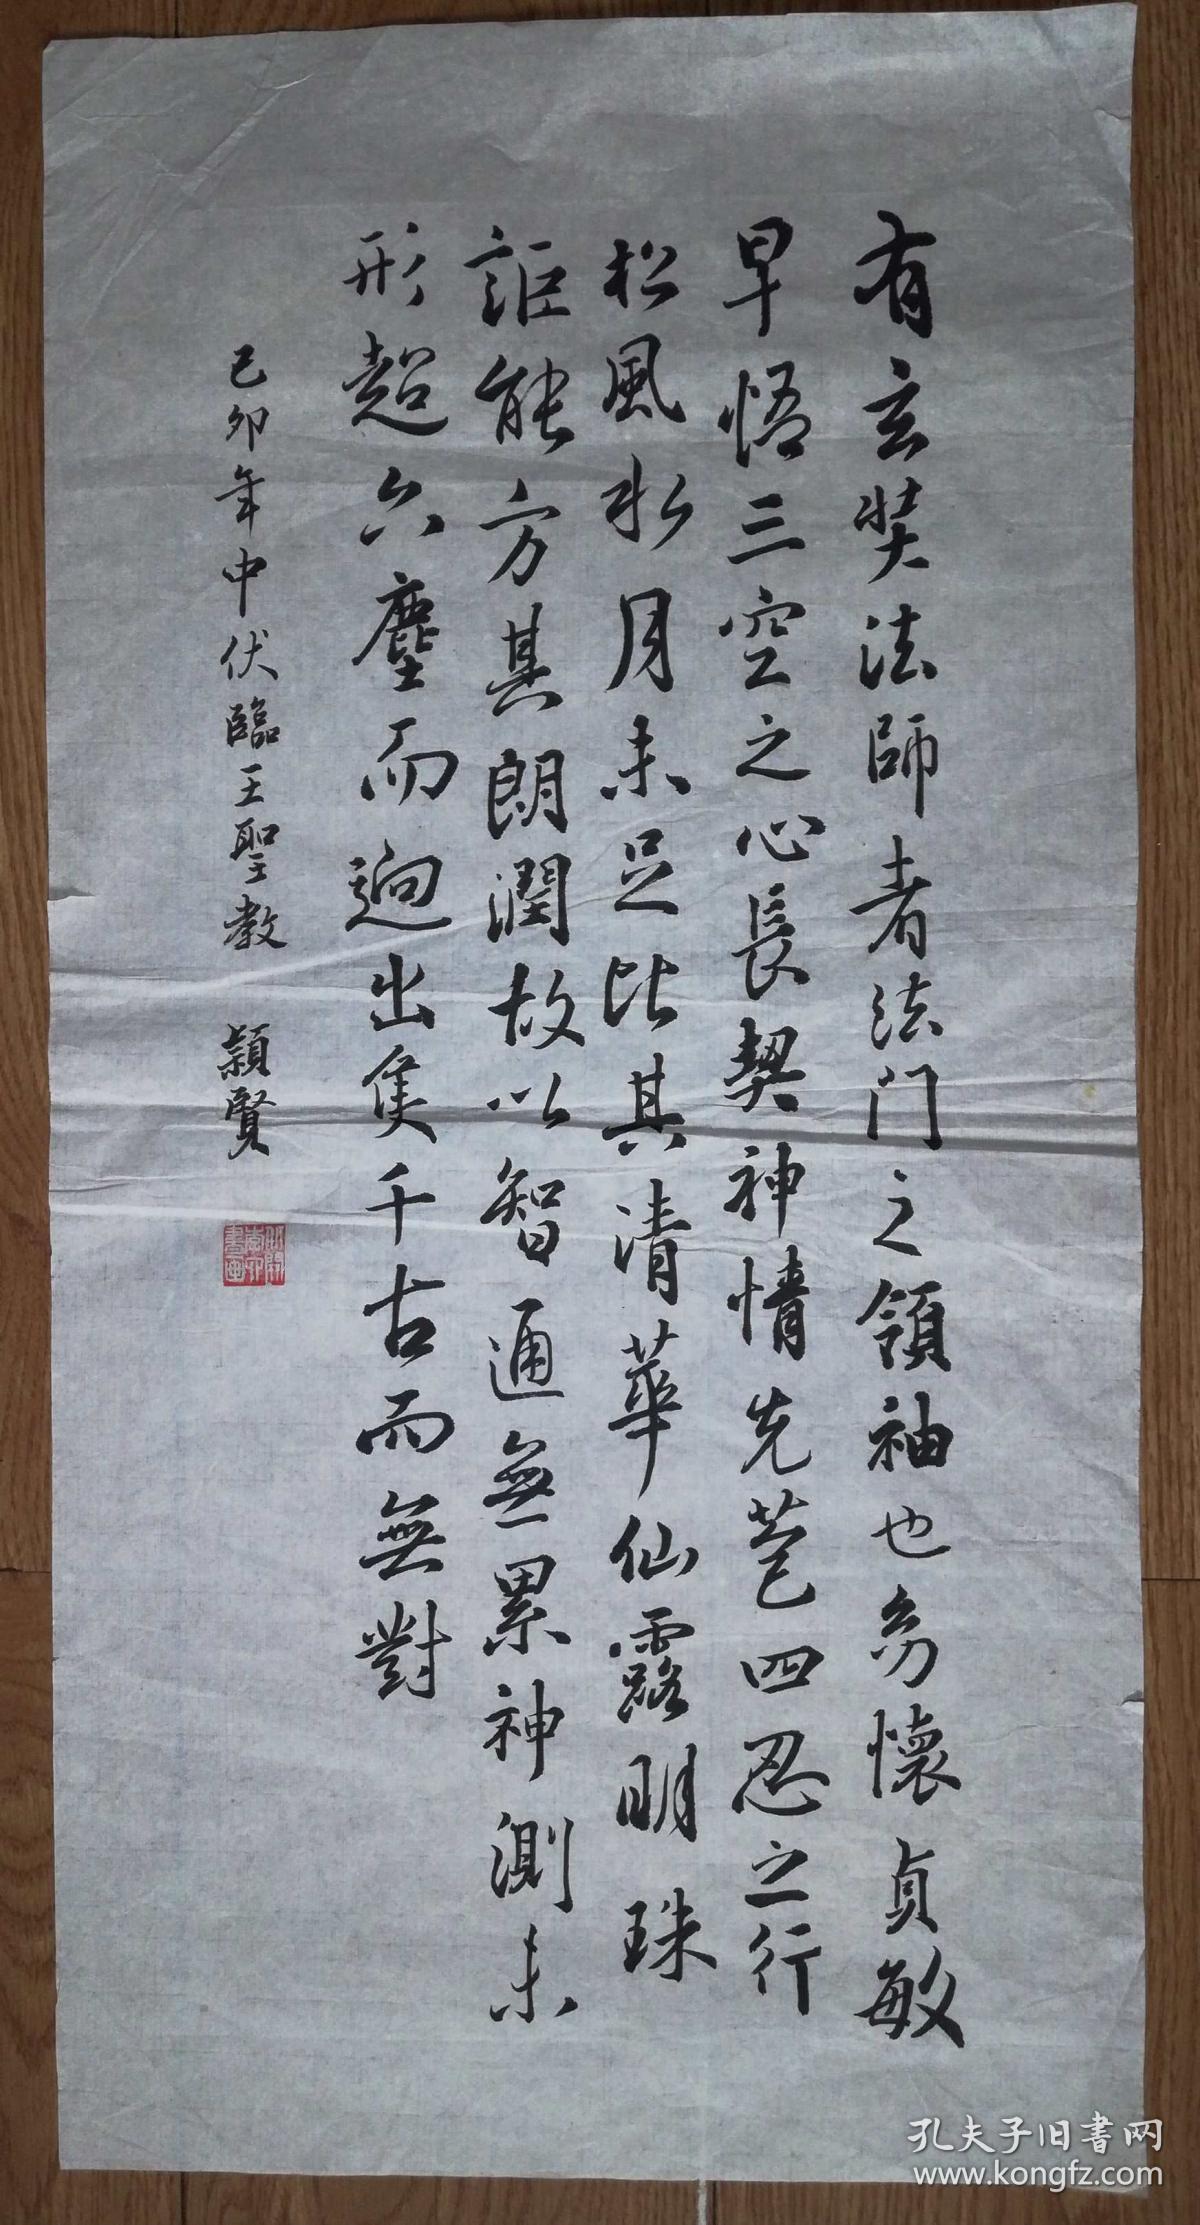 有玄奘法師者法門之領袖也㓜懷貞敏
早悟三空之心長契神情先苞四忍之行
松風水月未足比其清華仙露明珠
詎能方其朗潤故以智通無累神測未
形超六塵而迥出隻千古而無對
己卯年中伏臨王聖教 潁賢
孔夫子旧書网
www.kongfz.com